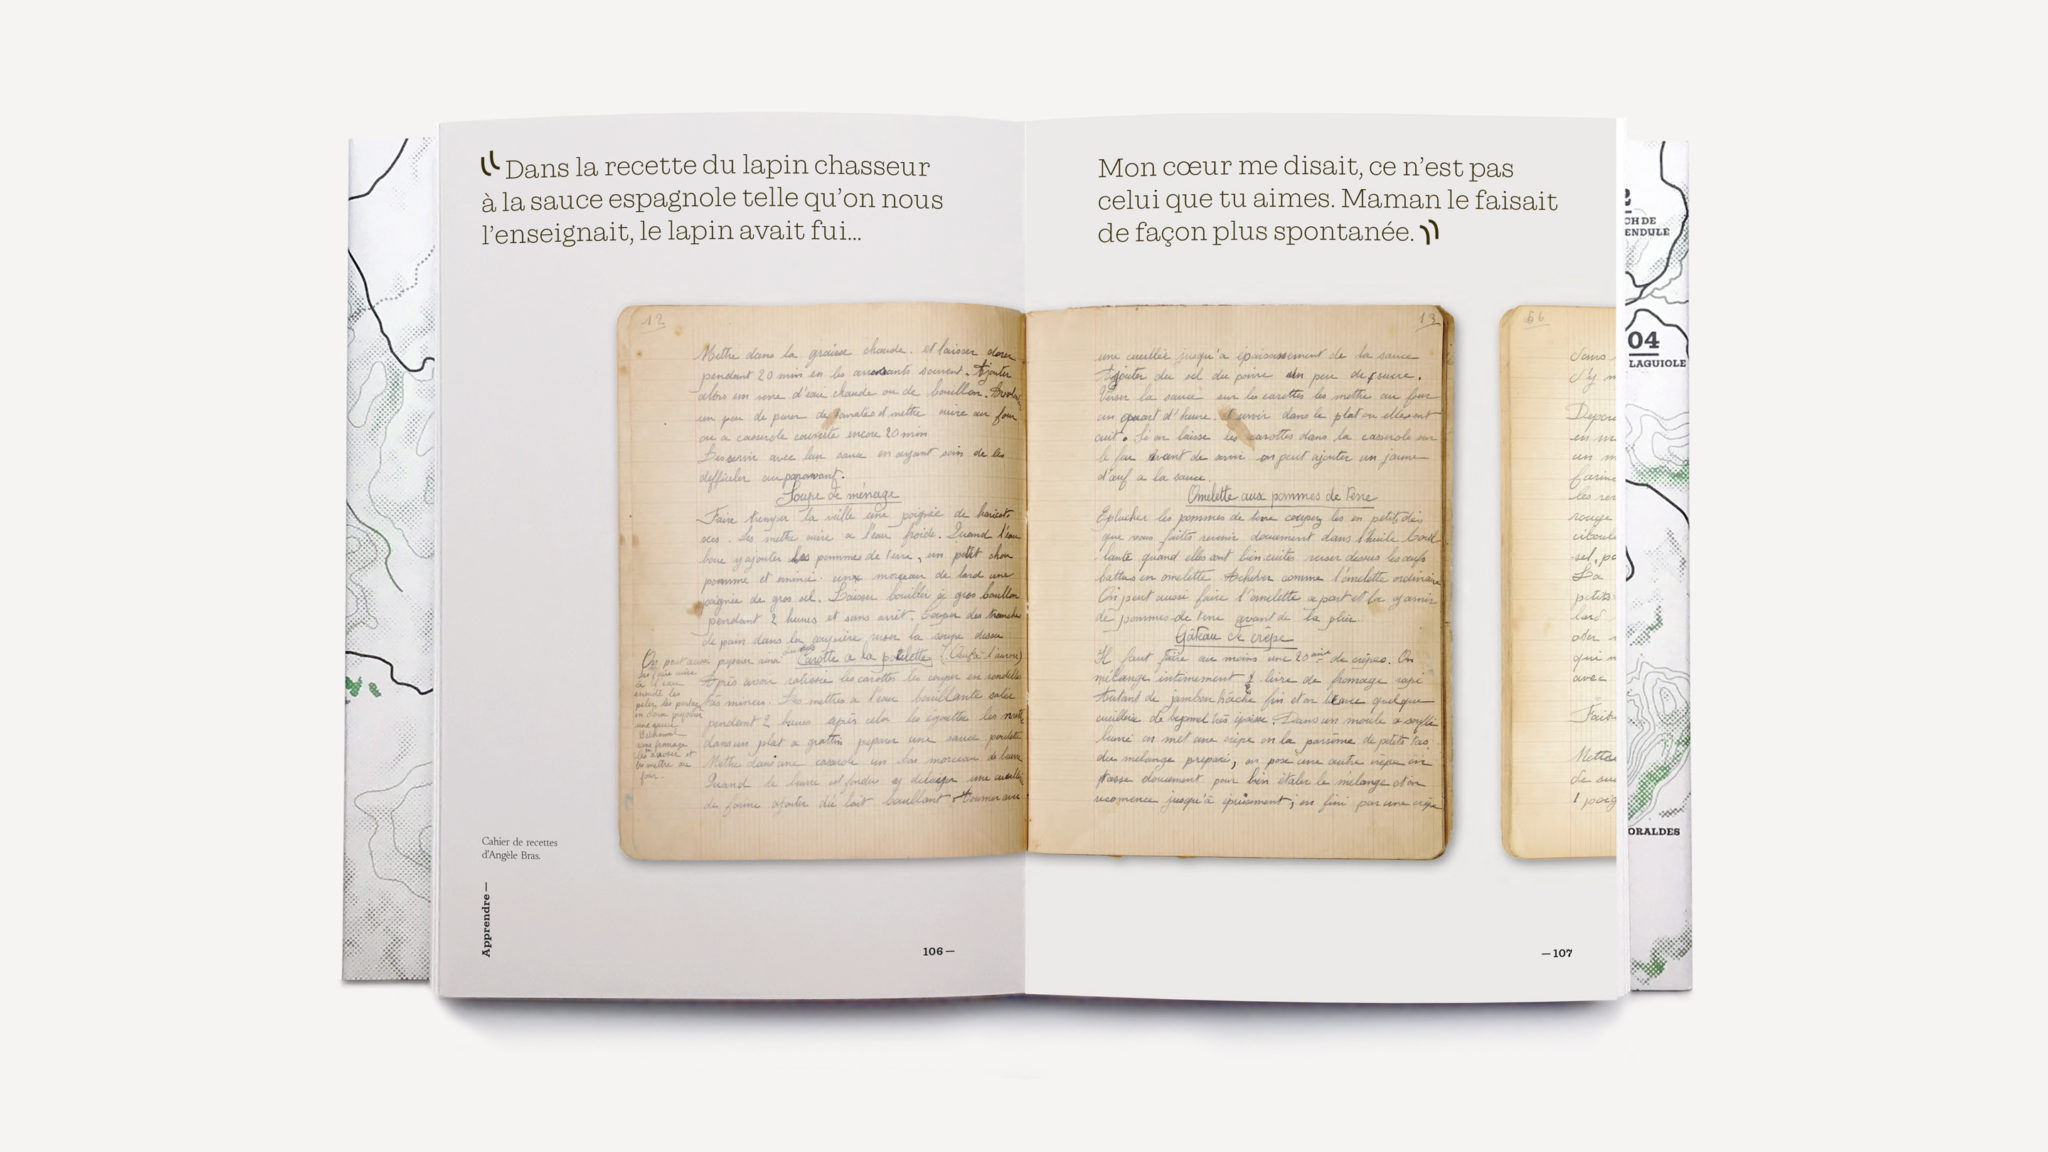 “ Dans la recette du lapin chasseur
à la sauce espagnole telle qu’on nous
l’enseignait, le lapin avait fui…
Mon cœur me disait, ce n’est pas
celui que tu aimes. Maman le faisait
de façon plus spontanée. ”
12
Mettre dans la graisse chaude. et laisser dorer
pendant 20 min en les arrosants souvent. Ajouter
alors un verre d'eau chaude ou de bouillon.
un peu de mettre cuire au four
ou a casserole couverte encore 20 min
Desservir avec leur sauce en ayant soin de les
défficeler auparavant.
Soupe de ménage
Faire tremper la veille une poignée de haricots
secs. Les mettre cuire a l'eau froide. Quand l'eau
bout y ajouter les pomme de terre, un petit chou
pomme et émincé un morceau de lard une
poignée de gros sel. Laisser bouillir à gros bouillon
pendant 2 heures et sans arrêt. Couper des tranches
de pain dans la soupière verser la soupe dessus
On peut aussi Carotte a la poulette
Après avoir ratisser les carottes les couper en rondelles
très minces. Les mettre a l'eau bouillante salée
pendant 2 heures après cela les égoutter les mettre
dans un plat a gratin preparer une sauce poulette
Mettre dans une casserole un bon morceau de beurre
Quand le beurre est fondu y delayer une cuillère
de farine ajouter du lait bouillant. tourner avec
13
une cuillère jusqu'a épaississement de la sauce
Ajouter du sel du poivre un peu de sucre.
Verser la sauce sur les carottes les mettre au four
un quart d'heure. et servir dans le plat ou elles ont
cuit. Si on laisse les carottes dans la casserole sur
le feu avant de servir on peut ajouter un jaune
d'œuf a la sauce.
Omelette aux pommes de terre
Eplucher les pommes de terre coupez les en petits dés
que vous faites revenir doucement dans l'huile bouil
lante quand elles sont bien cuites verser dessus les œufs
battus en omelette. Achever comme l'omelette ordinaire
On peut aussi faire l'omelette a part et la garnir
de pommes de terre avant de la plier.
Gâteau de crêpe
Il faut faire au moins une 20aine de crêpes. On
mélange intimement livre de fromage rapé
Autant de jambon haché fin et on quelque
cuillère de très épaisse. Dans un moule a soufflé
beurré on met une crêpe on la parsème de petits tas
du mélange préparé, on pose une autre crêpe on
tasse doucement pour bien étaler le mélange et on
recomence jusqu'à épuisement; on fini par une crêpe
56
Cahier de recettes
d’Angèle Bras.
Apprendre —
106 —
— 107
CH DE
ENDULE
04
LAGUIOLE
ORALDES